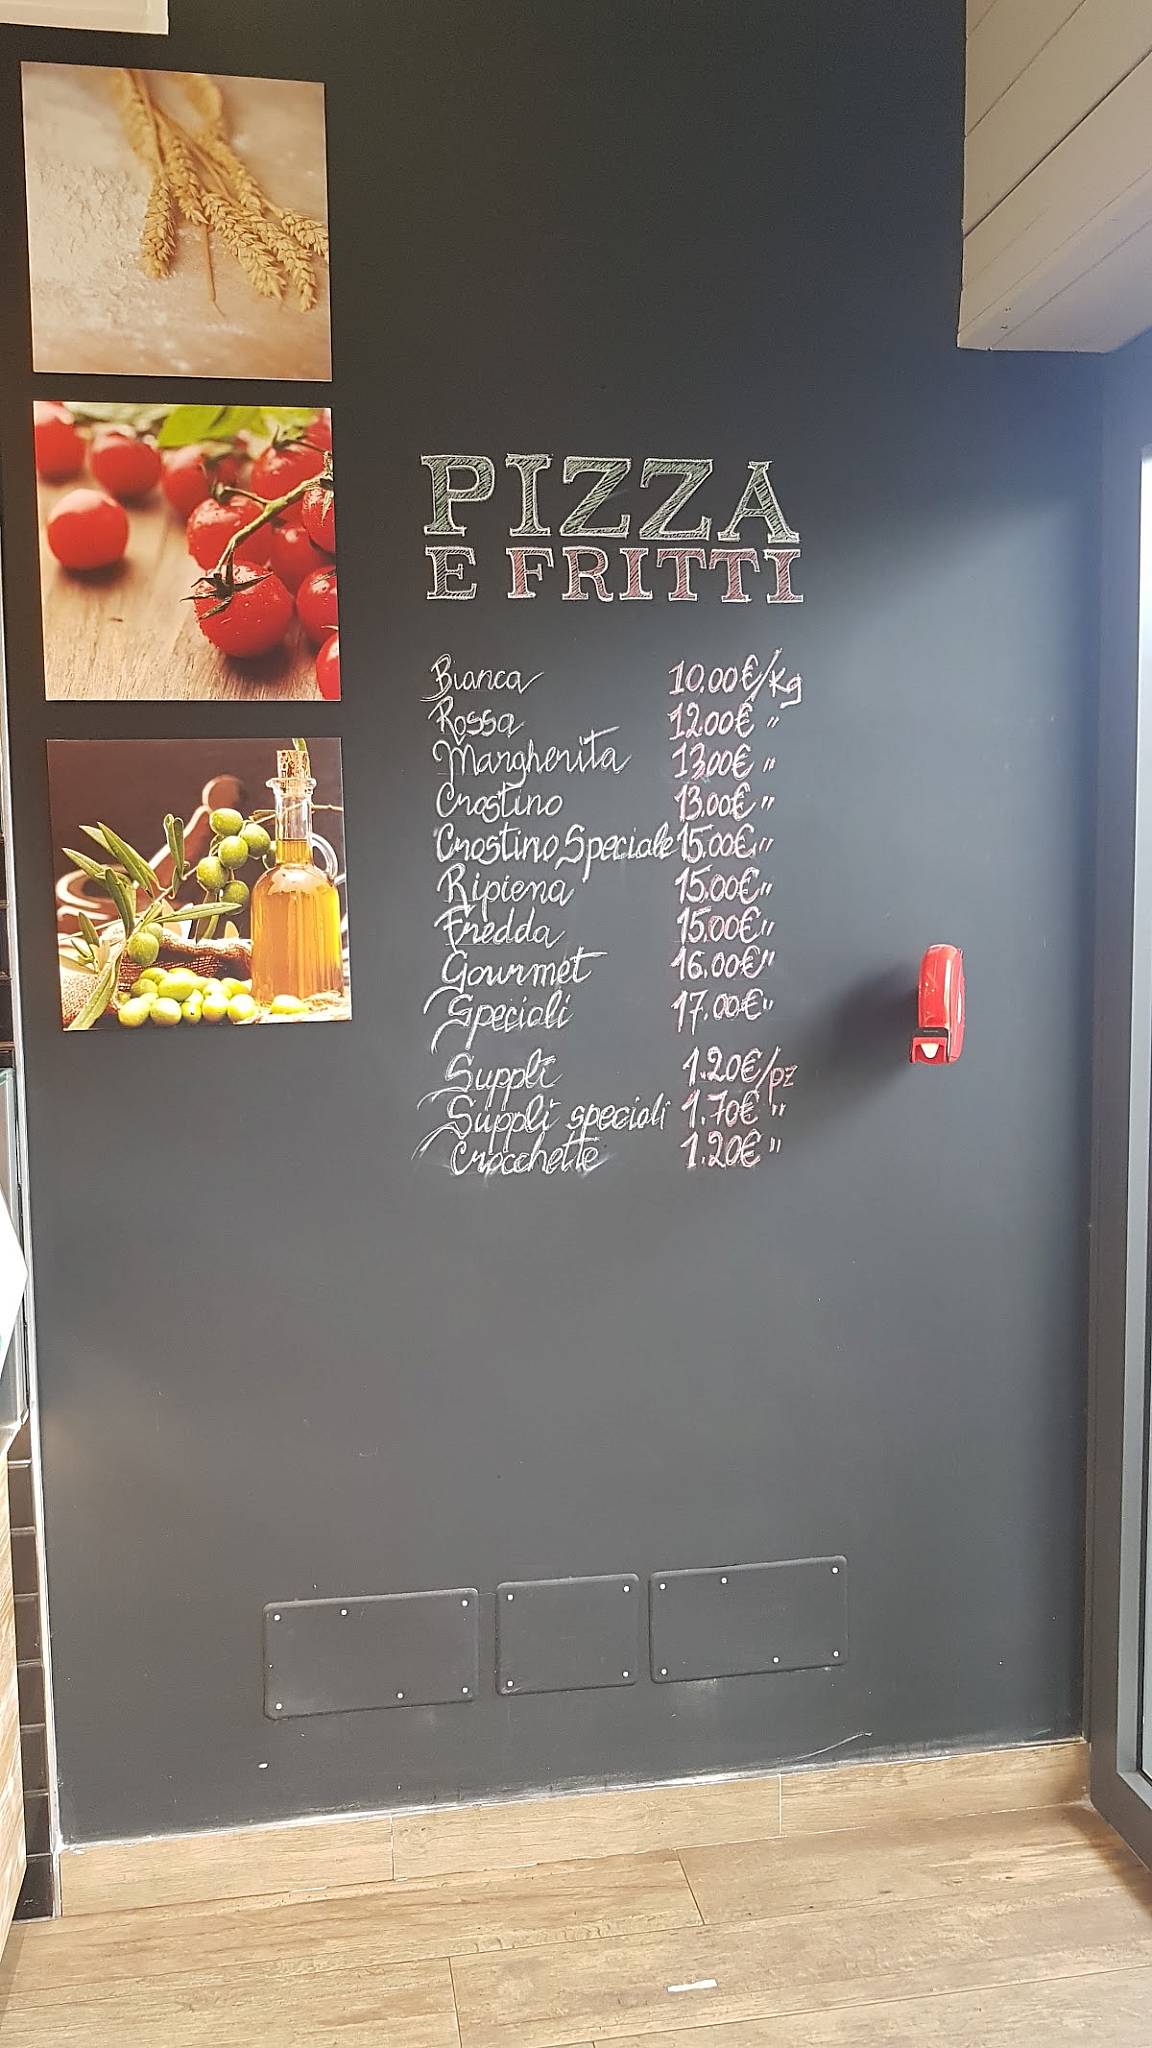 PIZZA
E FRITTI
Bianca 10.00€/Kg
Rossa 12.00€ "
Margherita 13.00€ "
Crostino 13.00€ "
Crostino Speciale 15.00€ "
Ripiena 15.00€ "
Fredda 15.00€ "
Gourmet 16.00€ "
Speciali 17.00€ "
Supplì 1.20€/pz
Supplì speciali 1.70€ "
Crocchette 1.20€ "